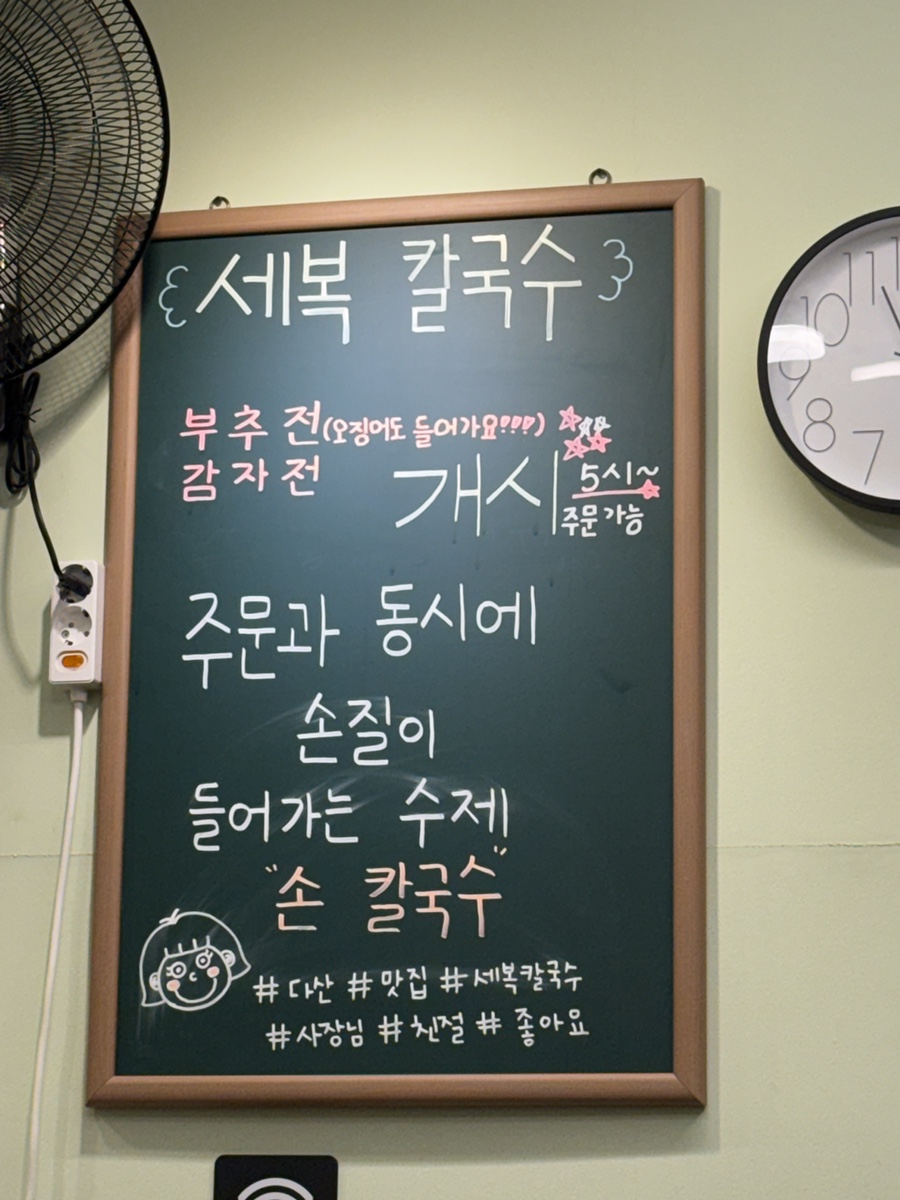 세복 칼국수
부추전(오징어도 들어가요!!!)
감자전 개시 5시~
주문가능
주문과 동시에
손질이
들어가는 수제
"손 칼국수"
#다산 #맛집 #세복칼국수
#사장님 #친절 #좋아요
11
10
9
8
7